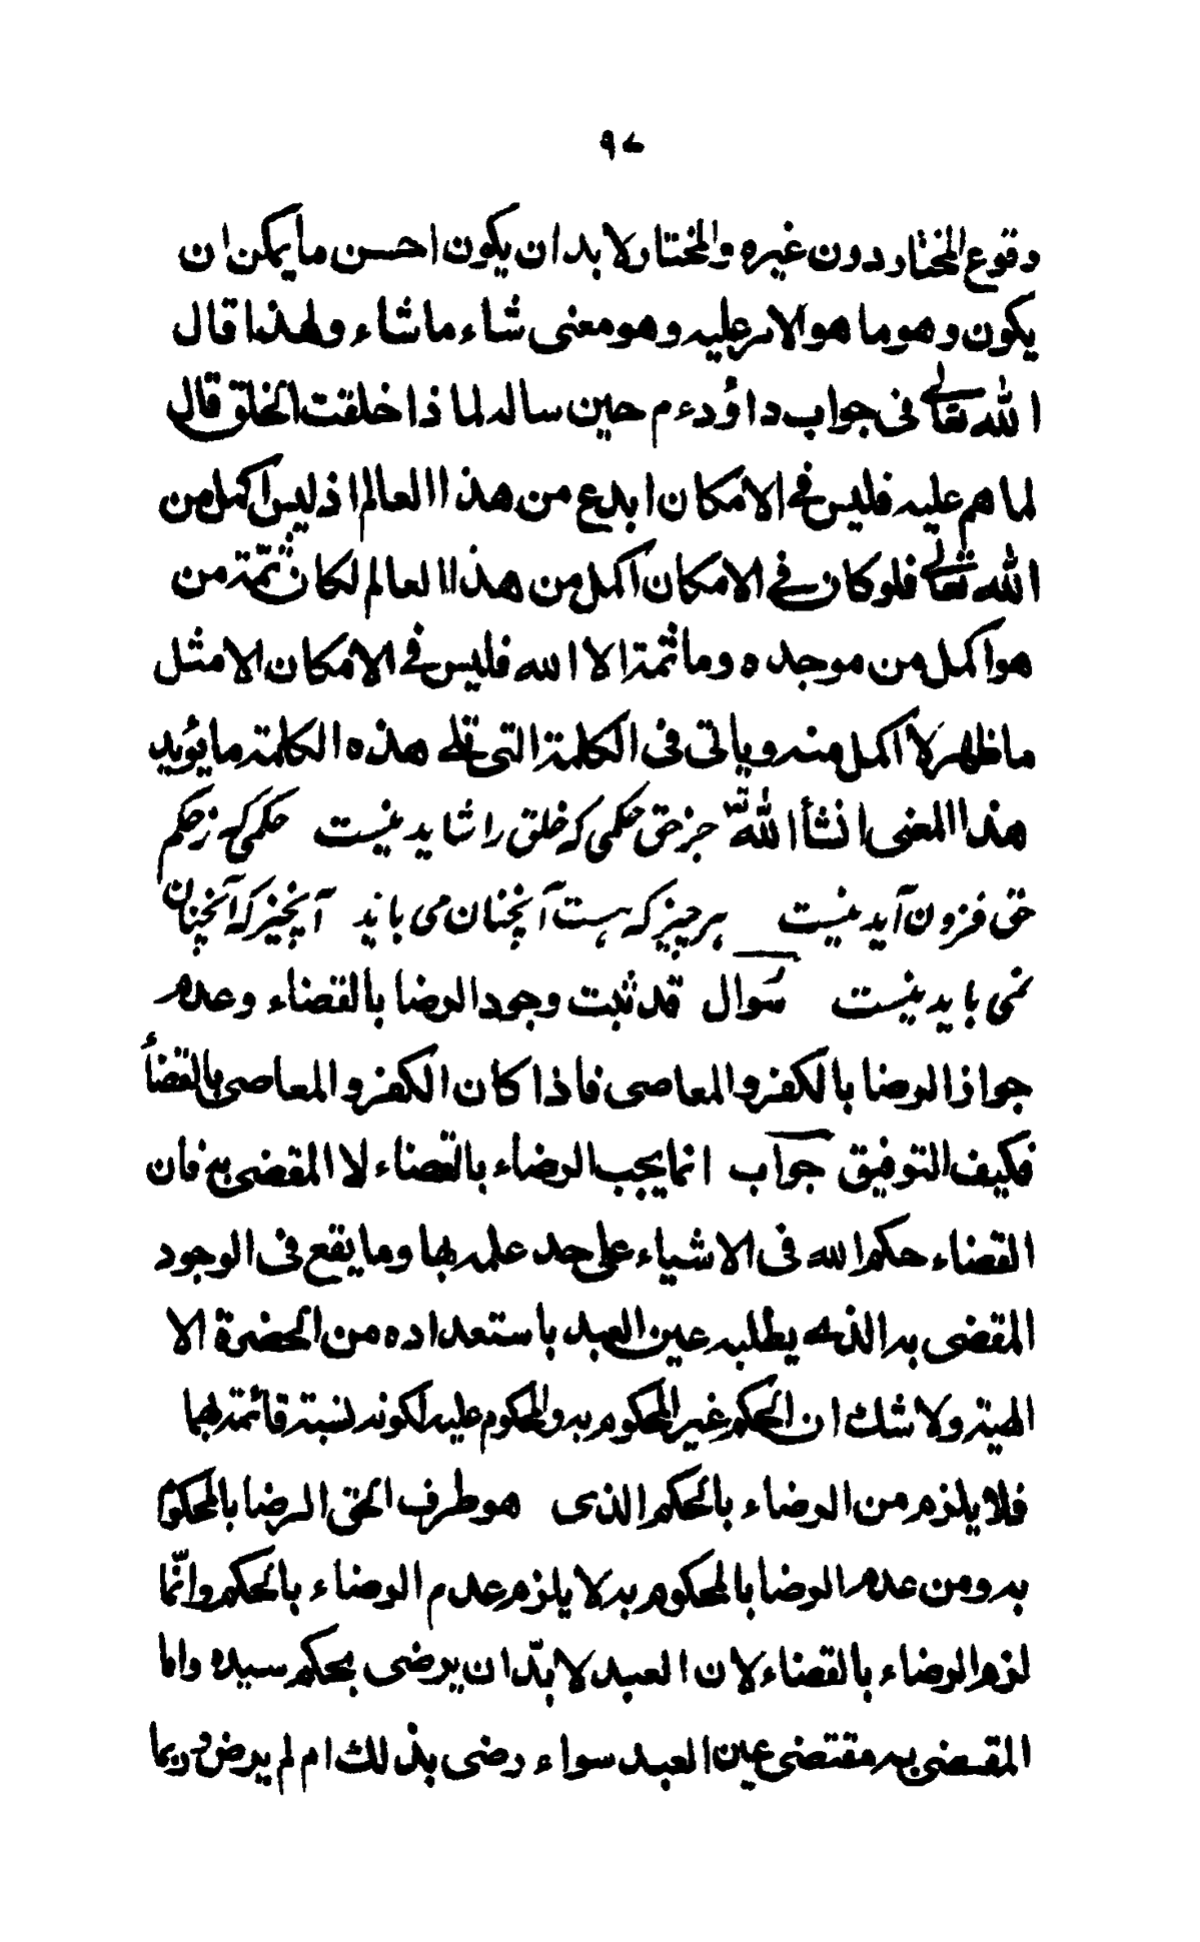 ٩٧
وقوع المختار دون غيره والمختار لا بد ان يكون احسن ما يمكن ان
يكون وهو ما هو الامر عليه وهو معنى شاء ما شاء ولهذا قال
الله تعالى فى جواب داؤد ءم حين ساله لما ذا خلقت الخلق قال
لما هم عليه فليس فى الامكان ابدع من هذا العالم اذ ليس اكمل من
الله تعالى فلو كان فى الامكان اكمل من هذا العالم لكان ثمّة من
هو اكمل من موجده وما ثمة الا الله فليس فى الامكان الا مثل
ما ظهر لا اكمل منه وياتى فى الكلمة التى تلى هذه الكلمة ما يؤيد
هذا المعنى انشأ الله جز حق حكمى كه خلق را شايد نيست حكمى كه ز حكم
حق فزون آيد نيست هر چيز كه هست آنچنان مى بايد آنچيز كه آنچنان
نمى بايد نيست سُوال قد ثبت وجود الرضا بالقضاء وعدم
جواز الرضا بالكفر والمعاصى فاذا كان الكفر والمعاصى بالقضأ
فكيف التوفيق جواب انما يجب الرضاء بالقضاء لا المقضى به فان
القضاء حكم الله فى الاشياء على حد علمه بها وما يقع فى الوجود
المقضى به الذى يطلبه عين العبد باستعداده من الحضرة الا
لهية ولا شك ان الحكم غير المحكوم به والمحكوم عليه لكونه نسبة قائمة بهما
فلا يلزم من الرضاء بالحكم الذى هو طرف الحق الرضا بالمحكوم
به ومن عدم الرضا بالمحكوم به لا يلزم عدم الرضاء بالحكم وانّما
لزم الرضاء بالقضاء لان العبد لا بدّ ان يرضى بحكم سيده واما
المقضى به مقتضى عين العبد سواء رضى بذلك ام لم يرض وربما